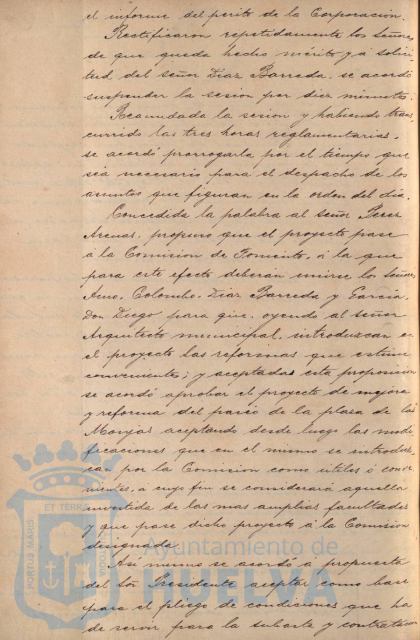 el informe del perito de la Corporación.
Rectificaron repetidamente los Señores
de que queda hecho mérito y á solici-
tud del señor Diaz Barreda, se acordó
suspender la sesion por diez minutos.
Reanudada la sesion y habiendo trans-
currido las tres horas reglamentarias,
se acordó prorrogarla por el tiempo que
sea necesario para el despacho de los
asuntos que figuran en la orden del dia.
Concedida la palabra al señor Perez
Arenas, propuso que el proyecto pase
á la Comision de Fomento, á la que
para este efecto deberán unirse los señores
Colombo, Diaz Barreda y Garcia,
Don Diego para que, oyendo al señor
Arquitecto municipal, introduzcan en
el proyecto las reformas que estime
convenientes; y aceptada esta proposicion
se acordó aprobar el proyecto de mejora
y reforma del paseo de la plaza de las
Monjas aceptando desde luego las modi-
ficaciones que en el mismo se introduz-
can por la Comision como útiles ó conve-
nientes, á cuyo fin se considerará aquella
investida de las mas amplias facultades
y que pase dicho proyecto á la Comision
designada.
Asi mismo se acordó á propuesta
del Sor Presidente aceptar como base
para el pliego de condiciones que ha
de servir para la subasta y contratacion
PORTUS MARIS ET TERRÆ
Ayuntamiento de
HUELVA